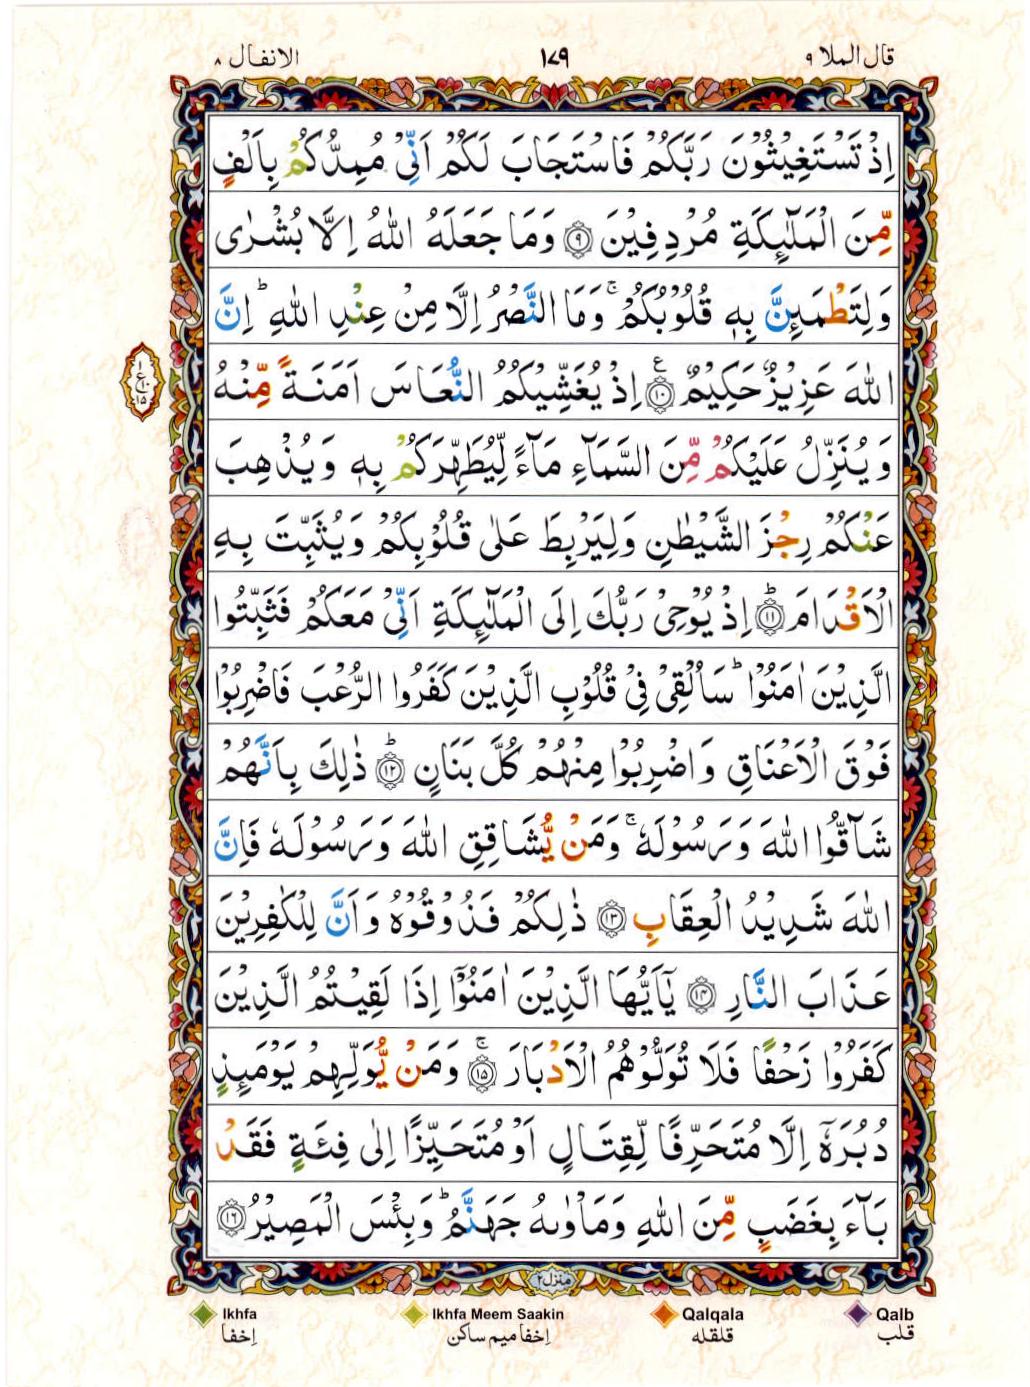 قال الملا ٩ ١٧٩ الانفال ٨
اِذْ تَسْتَغِيْثُوْنَ رَبَّكُمْ فَاسْتَجَابَ لَكُمْ اَنِّيْ مُمِدُّكُمْ بِاَلْفٍ
مِّنَ الْمَلٰٓئِكَةِ مُرْدِفِيْنَ ۝٩ وَمَا جَعَلَهُ اللّٰهُ اِلَّا بُشْرٰى
وَلِتَطْمَئِنَّ بِهٖ قُلُوْبُكُمْ ۚ وَمَا النَّصْرُ اِلَّا مِنْ عِنْدِ اللّٰهِ ؕ اِنَّ
اللّٰهَ عَزِيْزٌ حَكِيْمٌ ۝١٠ اِذْ يُغَشِّيْكُمُ النُّعَاسَ اَمَنَةً مِّنْهُ
وَيُنَزِّلُ عَلَيْكُمْ مِّنَ السَّمَآءِ مَآءً لِّيُطَهِّرَكُمْ بِهٖ وَيُذْهِبَ
عَنْكُمْ رِجْزَ الشَّيْطٰنِ وَلِيَرْبِطَ عَلٰى قُلُوْبِكُمْ وَيُثَبِّتَ بِهِ
الْاَقْدَامَ ؕ۝١١ اِذْ يُوْحِيْ رَبُّكَ اِلَى الْمَلٰٓئِكَةِ اَنِّيْ مَعَكُمْ فَثَبِّتُوا
الَّذِيْنَ اٰمَنُوْا ؕ سَاُلْقِيْ فِيْ قُلُوْبِ الَّذِيْنَ كَفَرُوا الرُّعْبَ فَاضْرِبُوْا
فَوْقَ الْاَعْنَاقِ وَاضْرِبُوْا مِنْهُمْ كُلَّ بَنَانٍ ؕ۝١٢ ذٰلِكَ بِاَنَّهُمْ
شَآقُّوا اللّٰهَ وَرَسُوْلَهٗ ۚ وَمَنْ يُّشَاقِقِ اللّٰهَ وَرَسُوْلَهٗ فَاِنَّ
اللّٰهَ شَدِيْدُ الْعِقَابِ ۝١٣ ذٰلِكُمْ فَذُوْقُوْهُ وَاَنَّ لِلْكٰفِرِيْنَ
عَذَابَ النَّارِ ۝١٤ يٰٓاَيُّهَا الَّذِيْنَ اٰمَنُوْٓا اِذَا لَقِيْتُمُ الَّذِيْنَ
كَفَرُوْا زَحْفًا فَلَا تُوَلُّوْهُمُ الْاَدْبَارَ ۚ۝١٥ وَمَنْ يُّوَلِّهِمْ يَوْمَئِذٍ
دُبُرَهٗٓ اِلَّا مُتَحَرِّفًا لِّقِتَالٍ اَوْ مُتَحَيِّزًا اِلٰى فِئَةٍ فَقَدْ
بَآءَ بِغَضَبٍ مِّنَ اللّٰهِ وَمَاْوٰىهُ جَهَنَّمُ ؕ وَبِئْسَ الْمَصِيْرُ ۝١٦
١
ع١٠
١٥
منزل٢
Ikhfa Ikhfa Meem Saakin Qalqala Qalb
اِخفا اِخفا میم ساکن قلقله قلب